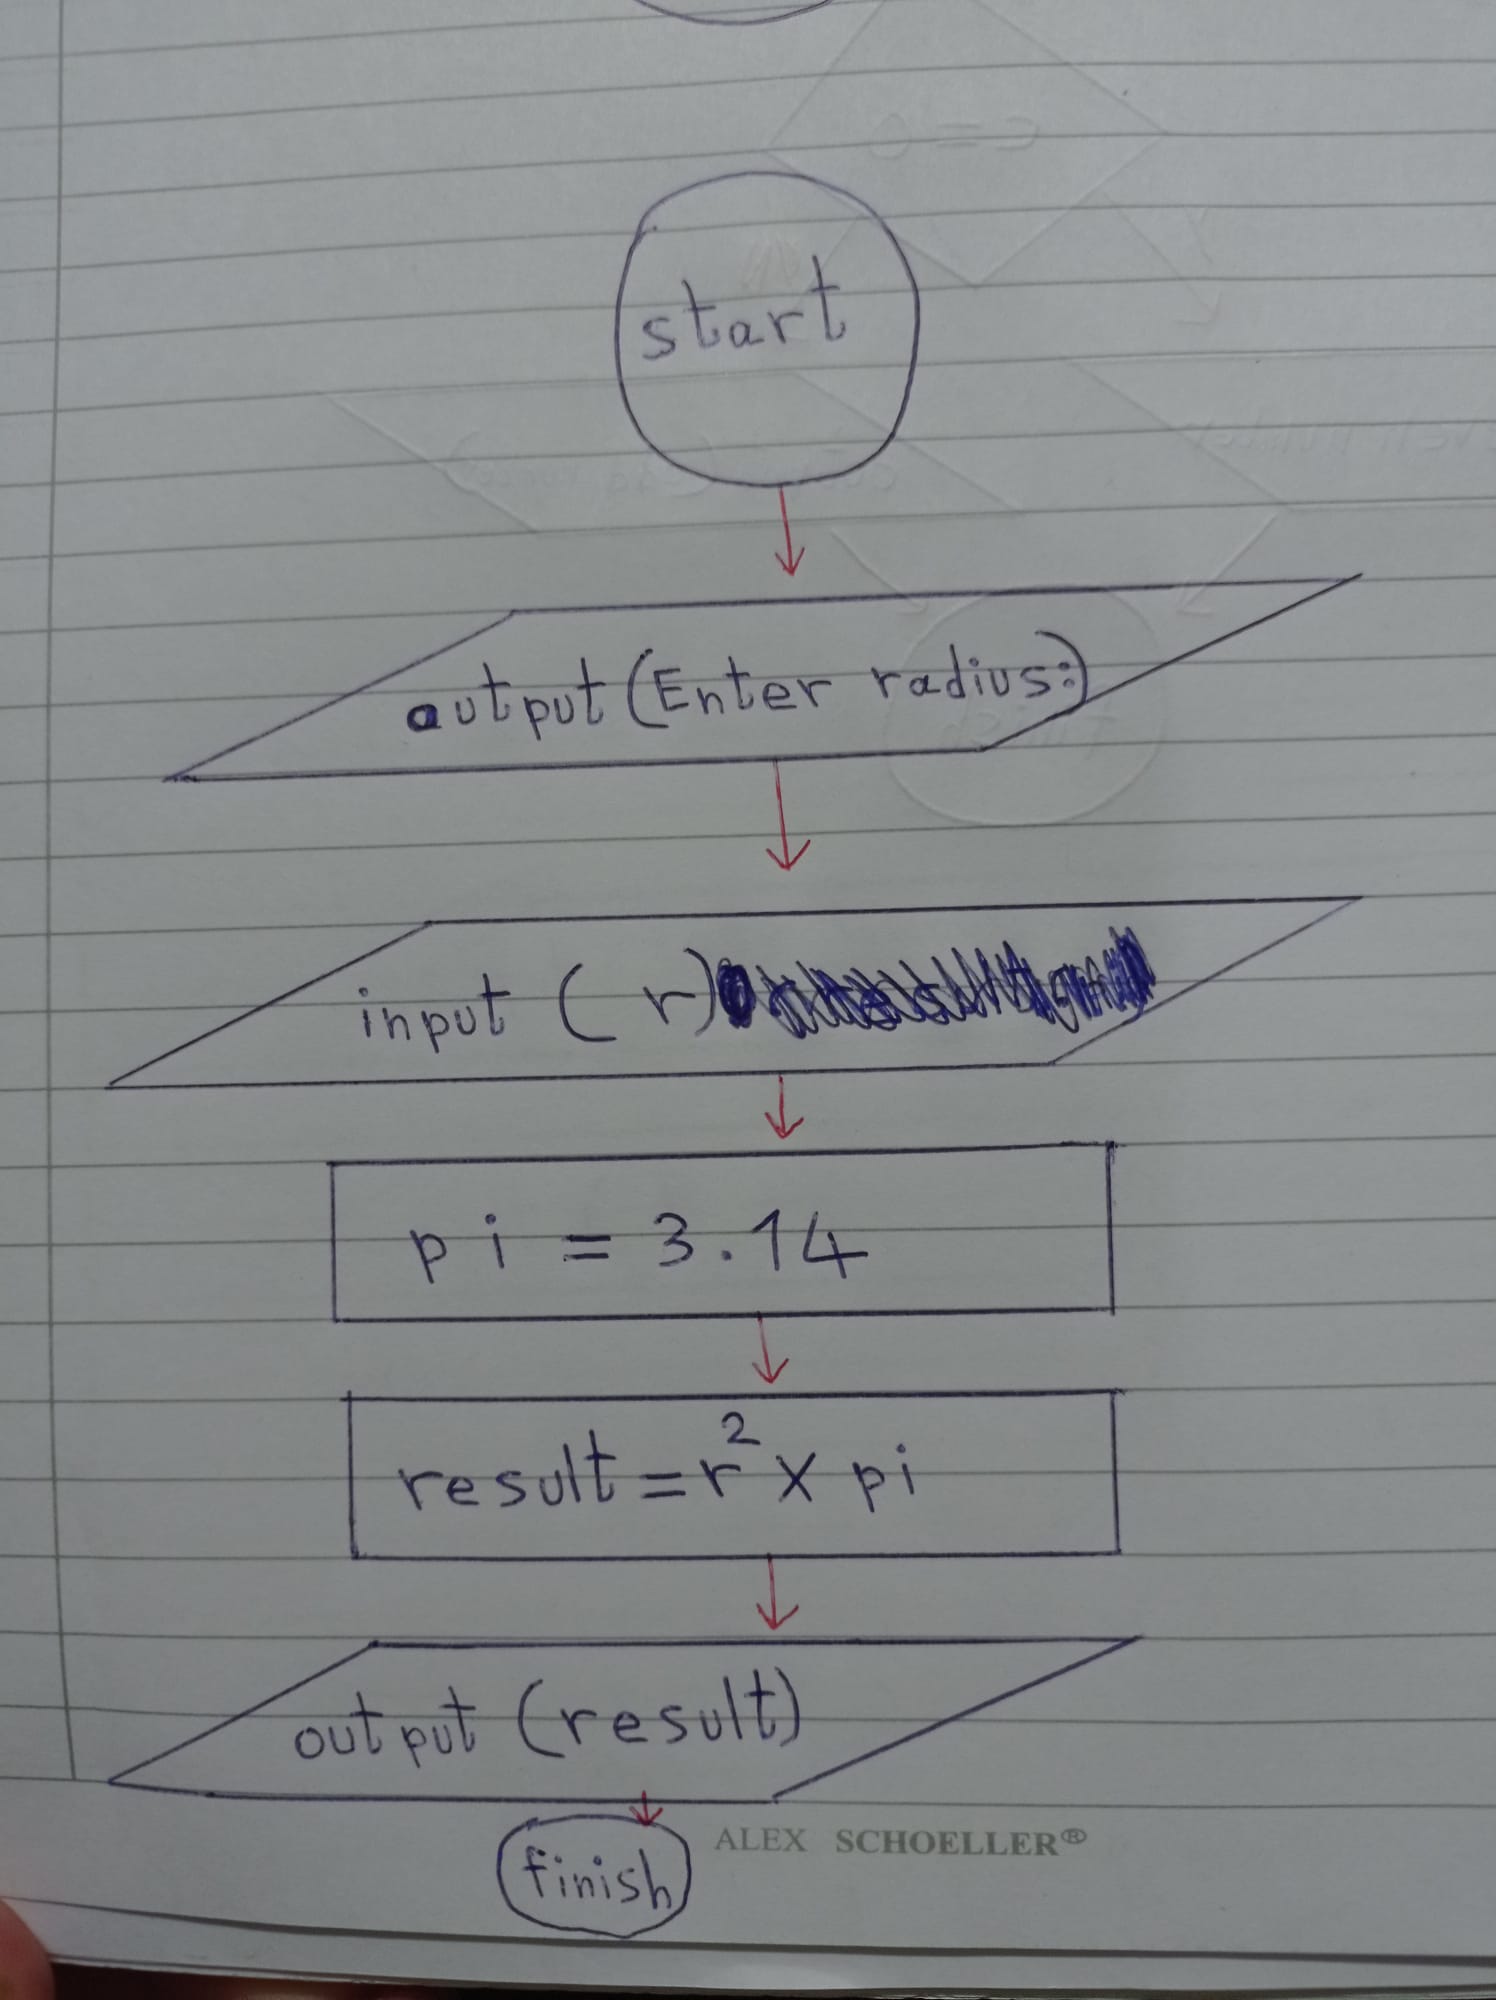 start
output (Enter radius:)
input ( r)
pi = 3.14
result = r² x pi
output (result)
finish
ALEX SCHOELLER®